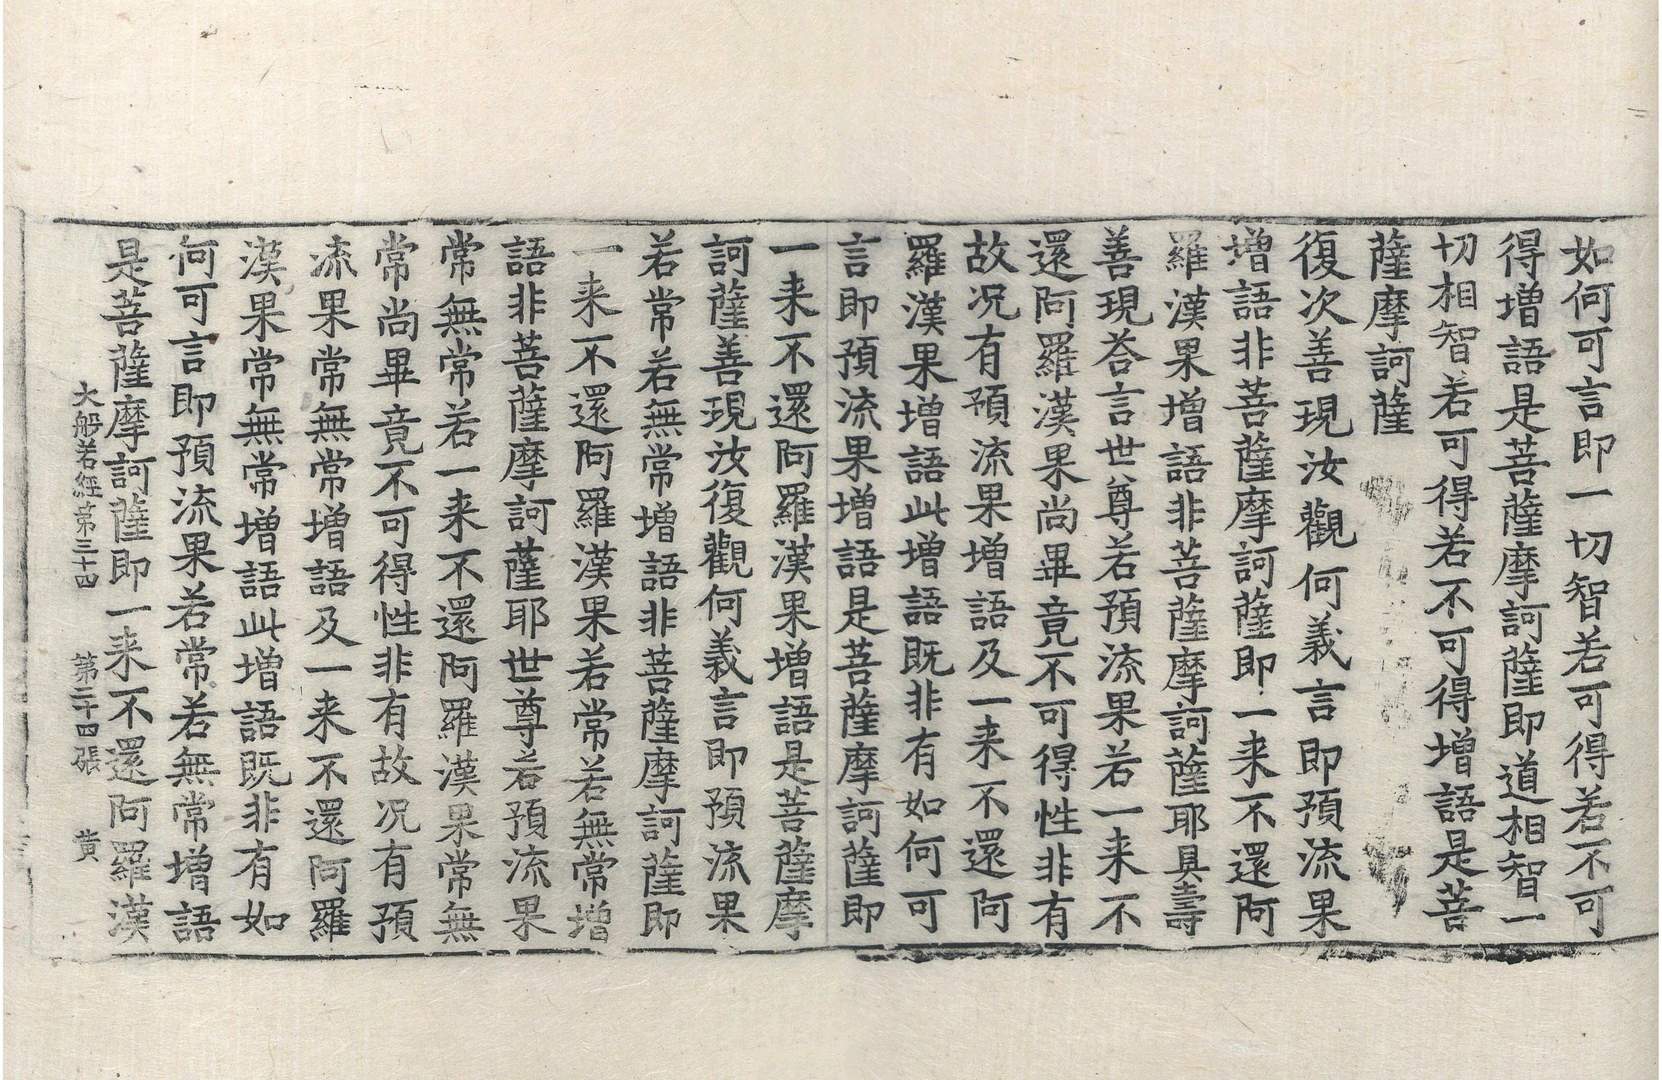 如何可言即一切智若可得若不可
得增語是菩薩摩訶薩即道相智一
切相智若可得若不可得增語是菩
薩摩訶薩
復次善現汝觀何義言即預流果
增語非菩薩摩訶薩即一来不還阿
羅漢果增語非菩薩摩訶薩耶具壽
善現荅言世尊若預流果若一来不
還阿羅漢果尚畢竟不可得性非有
故况有預流果增語及一来不還阿
羅漢果增語此增語既非有如何可
言即預流果增語是菩薩摩訶薩即
一来不還阿羅漢果增語是菩薩摩
訶薩善現汝復觀何義言即預流果
若常若無常增語非菩薩摩訶薩即
一来不還阿羅漢果若常若無常增
語非菩薩摩訶薩耶世尊若預流果
常無常若一来不還阿羅漢果常無
常尚畢竟不可得性非有故况有預
流果常無常增語及一来不還阿羅
漢果常無常增語此增語既非有如
何可言即預流果若常若無常增語
是菩薩摩訶薩即一来不還阿羅漢
大般若經第三十四 第二十四張 黄